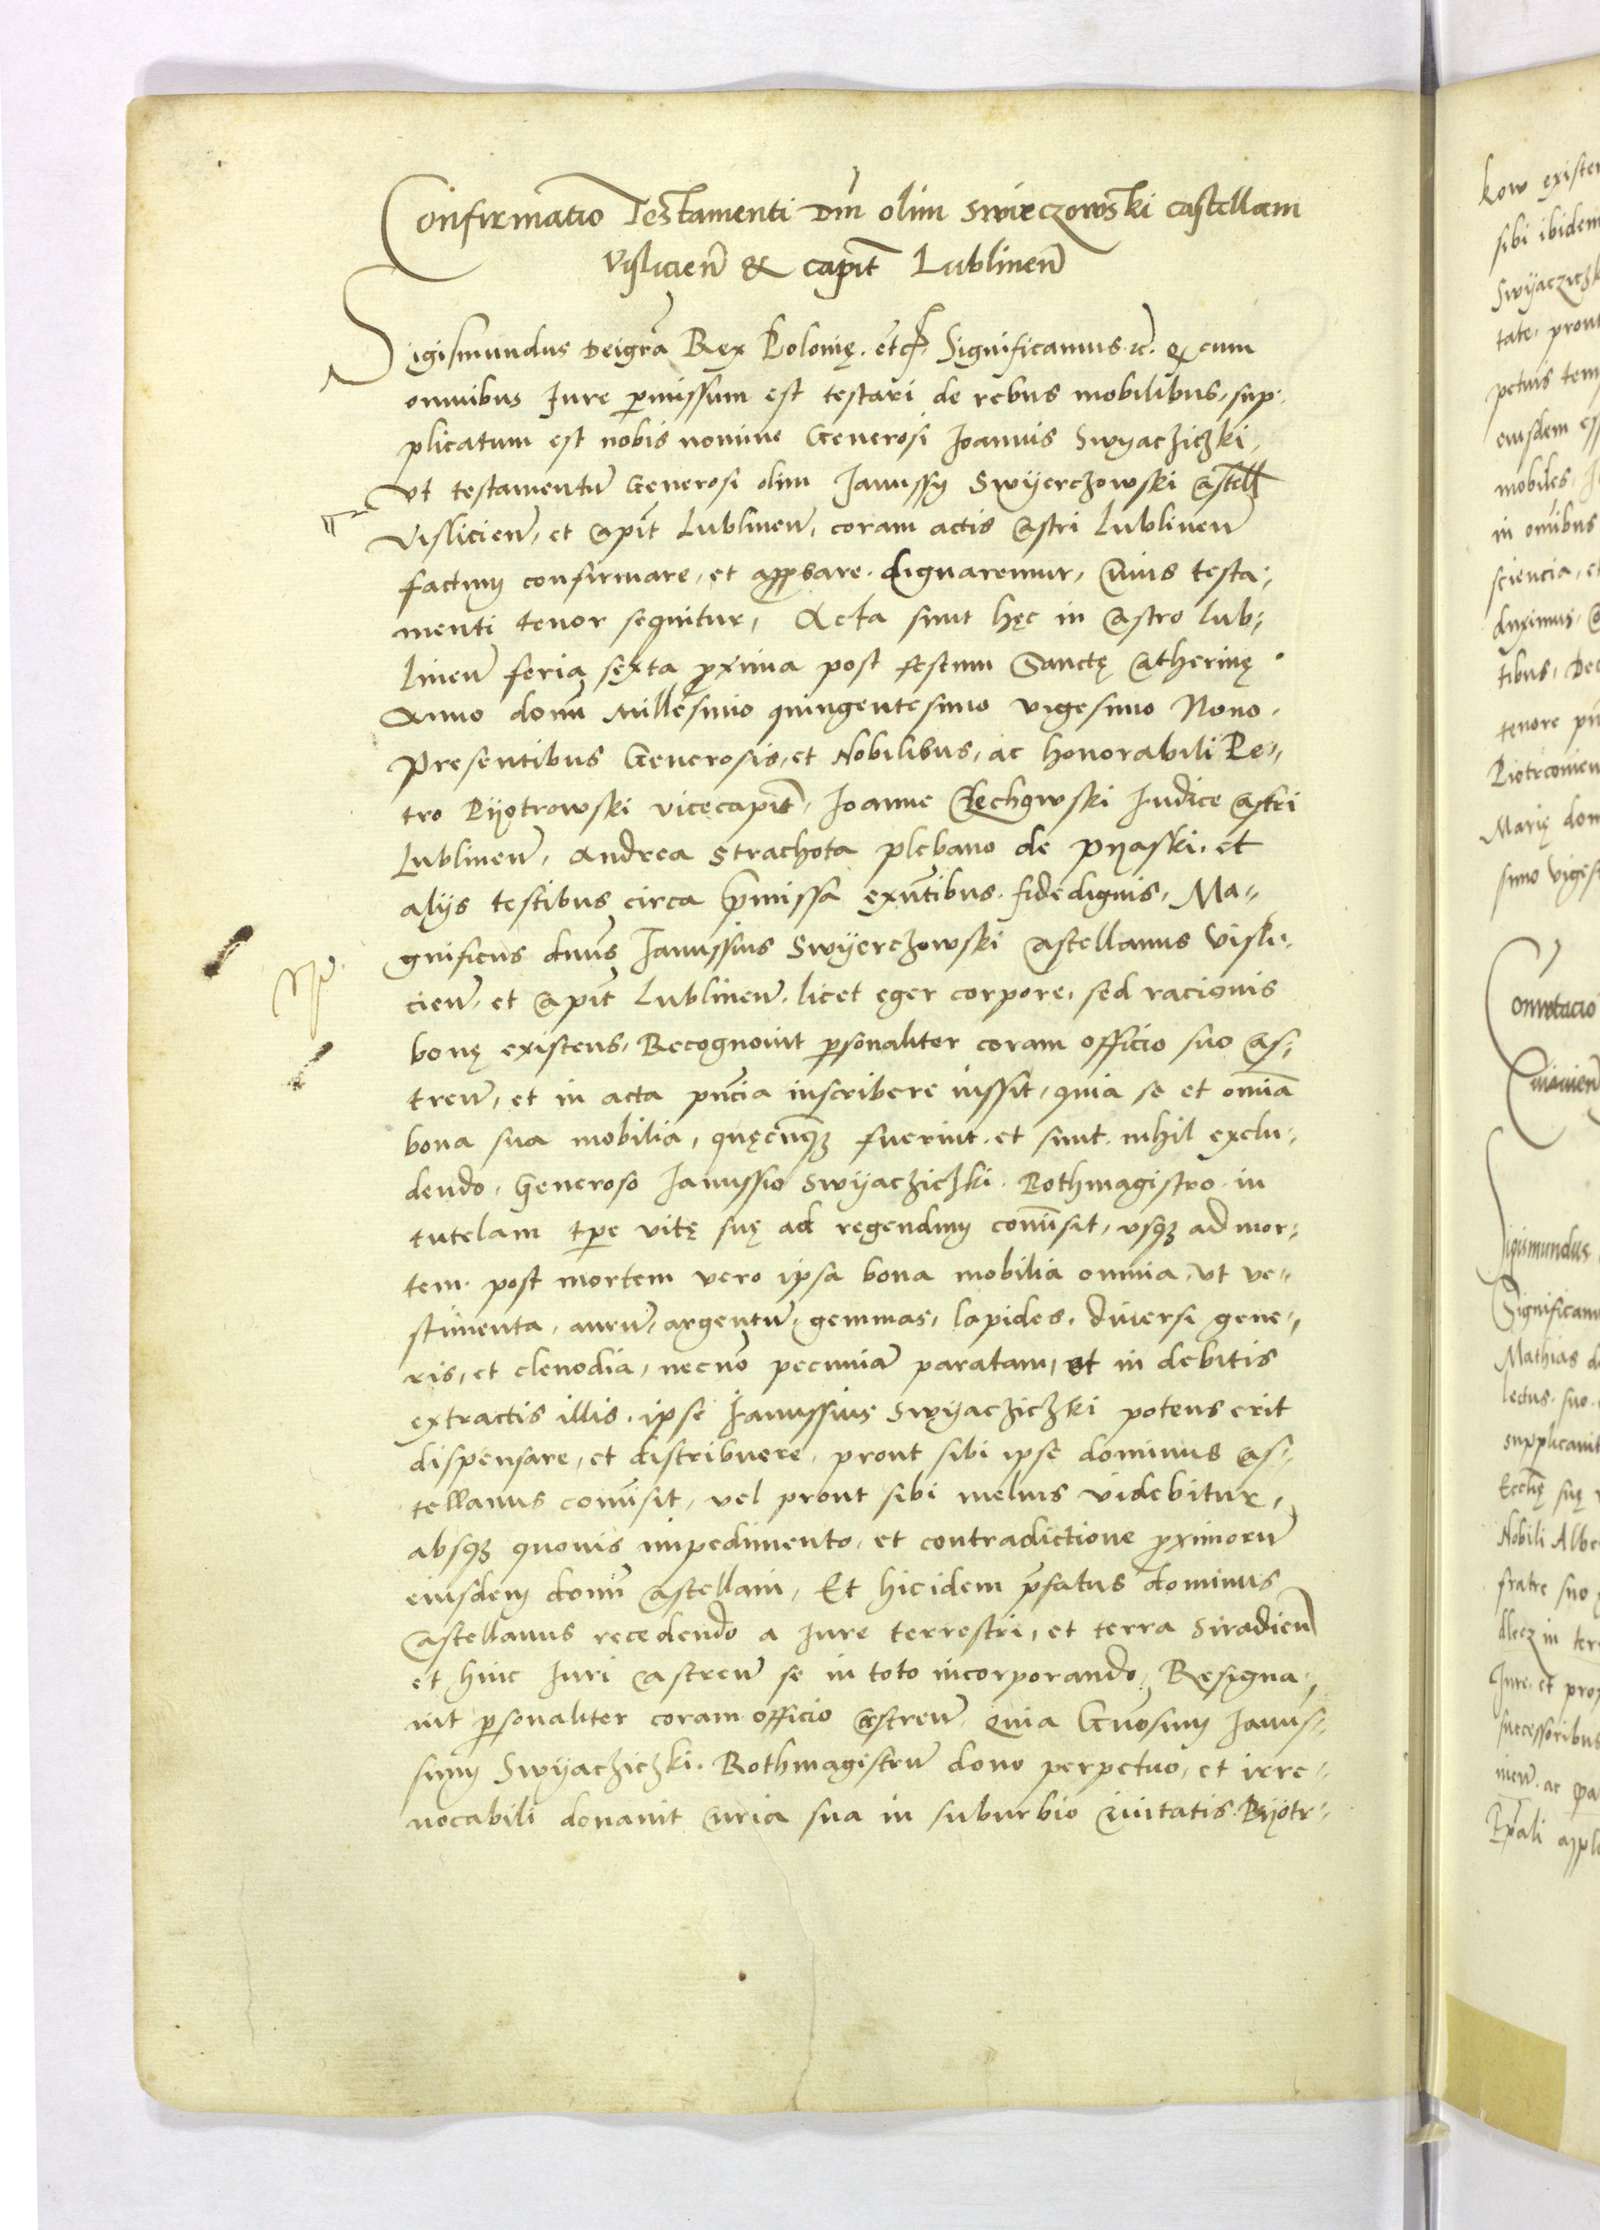 Confirmatio Testamenti Dni olim Swirczowski castellani
Vislicien̄ & capit̄ Lublinen̄
Sigismundus Dei gr̄a Rex Polonię. etc̄. Significamus ꝛc̄. Q cum
omnibus Jure p̱missum est testari de rebus mobilibus, sup-
plicatum est nobis nomine Generosi Joannis Swyacziczki,
Vt testamentū Generosi olim Janussij Swyerczowski Castell
Vislicien̄, et Capit̄ Lublinen̄, coram actis Castri Lublinen̄
factum confirmare, et approbare dignaremur, Cuius testa-
menti tenor sequitur, Acta sunt hęc in Castro Lub-
linen̄ feria sexta proxima post festum Sanctę Catherinę
Anno domī Millesimo quingentesimo vigesimo Nono.
Presentibus Generosis, et Nobilibus, ac honorabili Pe-
tro Pyotrowski vicecapit̄, Joanne Chechowski Judice Castri
Lublinen̄, Andrea Strachota plebano de Pyaski, et
alijs testibus circa p̄missa exn̄tibus fidedignis, Ma-
gnificus dnus Janussius Swyerczowski Castellanus Visli-
cien̄, et Capit̄ Lublinen̄, licet eger corpore, sed racionis
bonę existens, Recognouit p̱sonaliter coram officio suo Cas-
tren̄, et in acta pn̄cia inscribere iussit, quia se et omīa
bona sua mobilia, quęcunq̨ fuerint et sunt nihil exclu-
dendo, Generoso Janussio Swyacziczki Rothmagistro in
tutelam tp̱e vitę suę ad regendum com̄isit, vsq̨ ad mor-
tem, post mortem vero ipsa bona mobilia omnia, vt ve-
stimenta, aurū, argentū, gemmas, lapides, diuersi gene-
ris, et clenodia, necnō pecuniā paratam, et in debitis
extractis illis, ipse Janussius Swyacziczki potens erit
dispensare, et distribuere, prout sibi ipse dominus Cas-
tellanus com̄isit, vel prout sibi melius videbitur,
absq̨ quouis impedimento, et contradictione proximorū
eiusdem domī Castellani, Et hic idem p̄fatus dominus
Castellanus recedendo a Jure terrestri, et terra Siradien̄
et huic Juri Castren̄ se in toto incorporando, Resigna-
uit p̱sonaliter coram officio Castren̄, Quia Gn̄osum Janus-
sium Swyacziczki Rothmagistrū dono perpetuo, et irre-
uocabili donauit Curia sua in suburbio Ciuitatis Pyotr-
kow existen
sibi ibidem
Swyacziczk
tate, prout
petuis tem
eiusdem ess
mobiles,
in om̄ibus
sciencia, et
duximus,
tibus, Dec
tenore
Piotrconien
Marię dom
simo vigesi
Com̄utacio
Sigismundus
Significam
Mathias d
lectus suo
supplicauit
Ecclię suę
Nobili Albe
fratre suo
in ter
Jure, et prop
successoribus
ac
appl